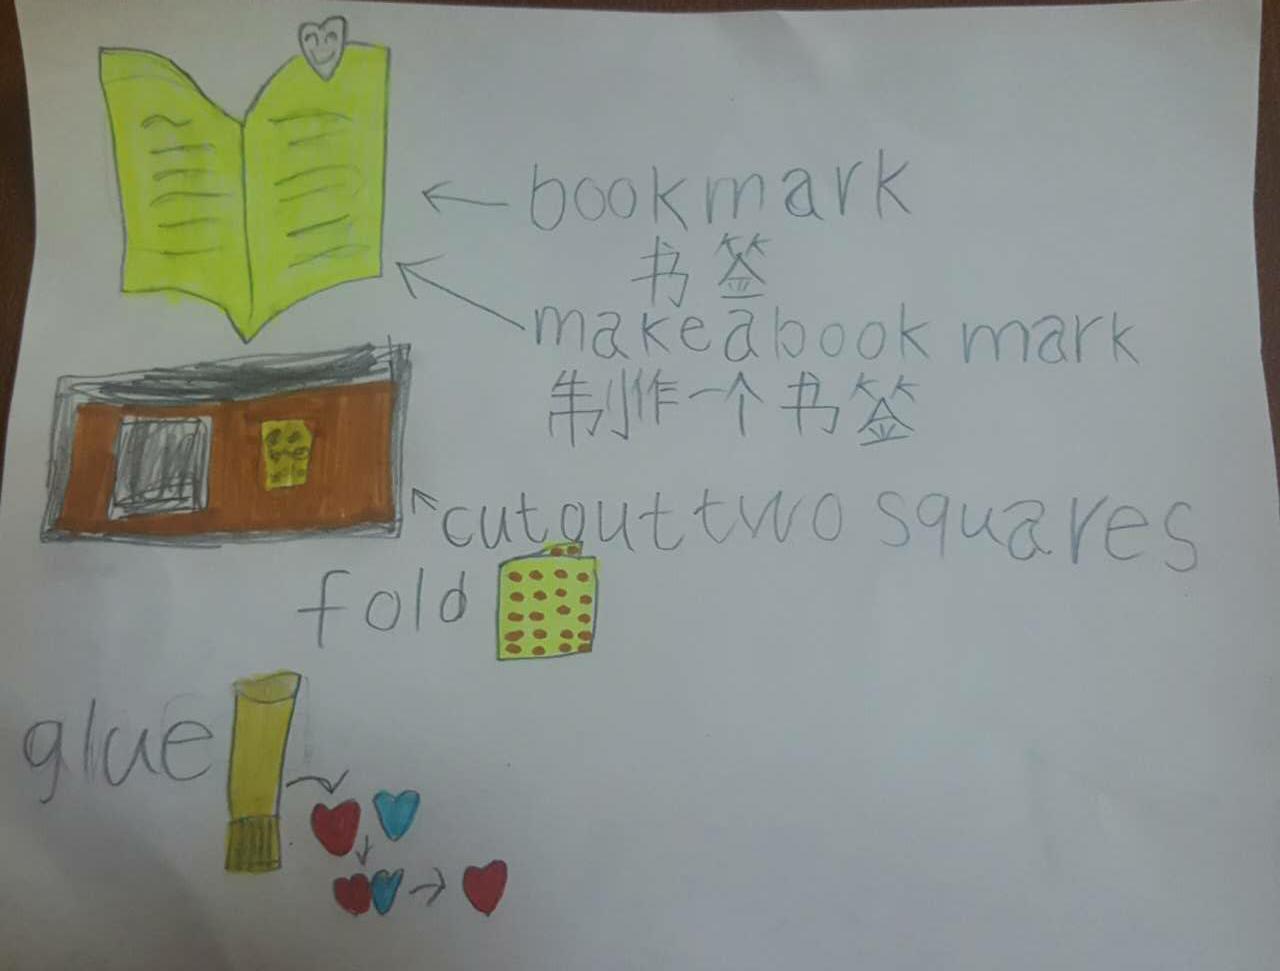 bookmark
书签
make a book mark
制作一个书签
cut out two squares
fold
glue